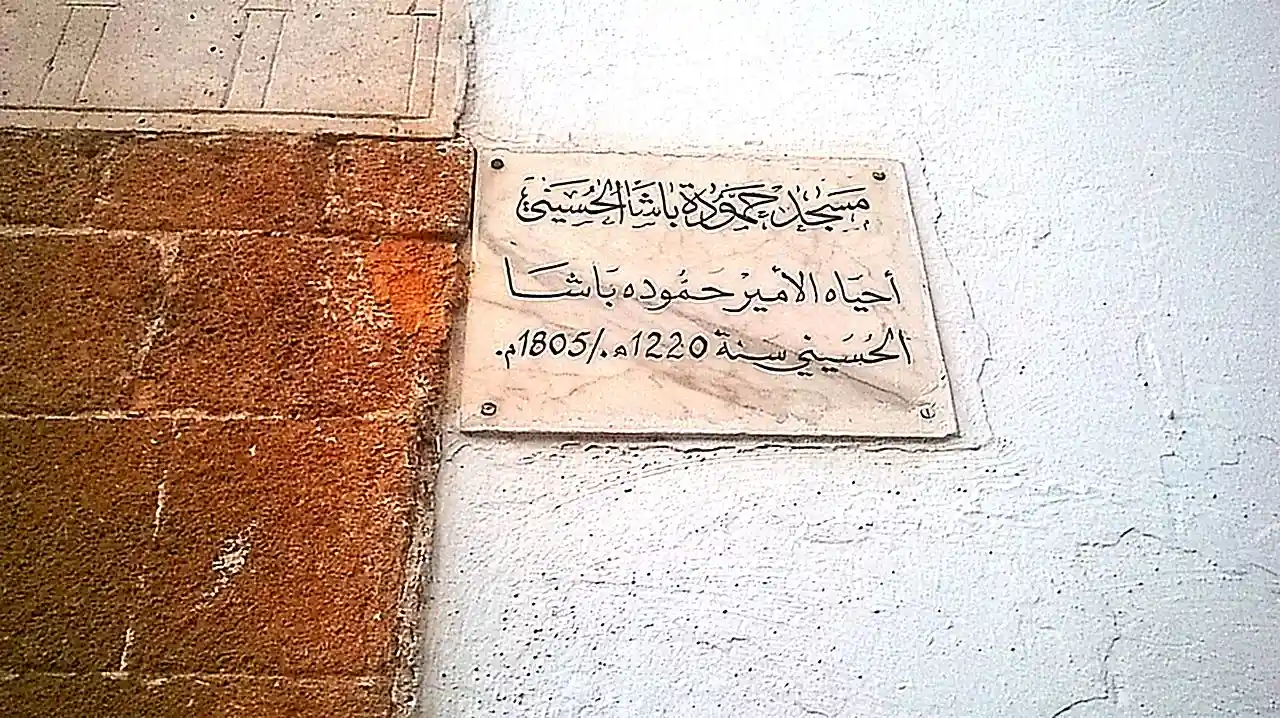 مسجد حمّودة باشا الحُسَيني
أحيَاه الأميْر حَمُّوده بَاشَا
الحُسَيني سنة 1220ه./1805م.